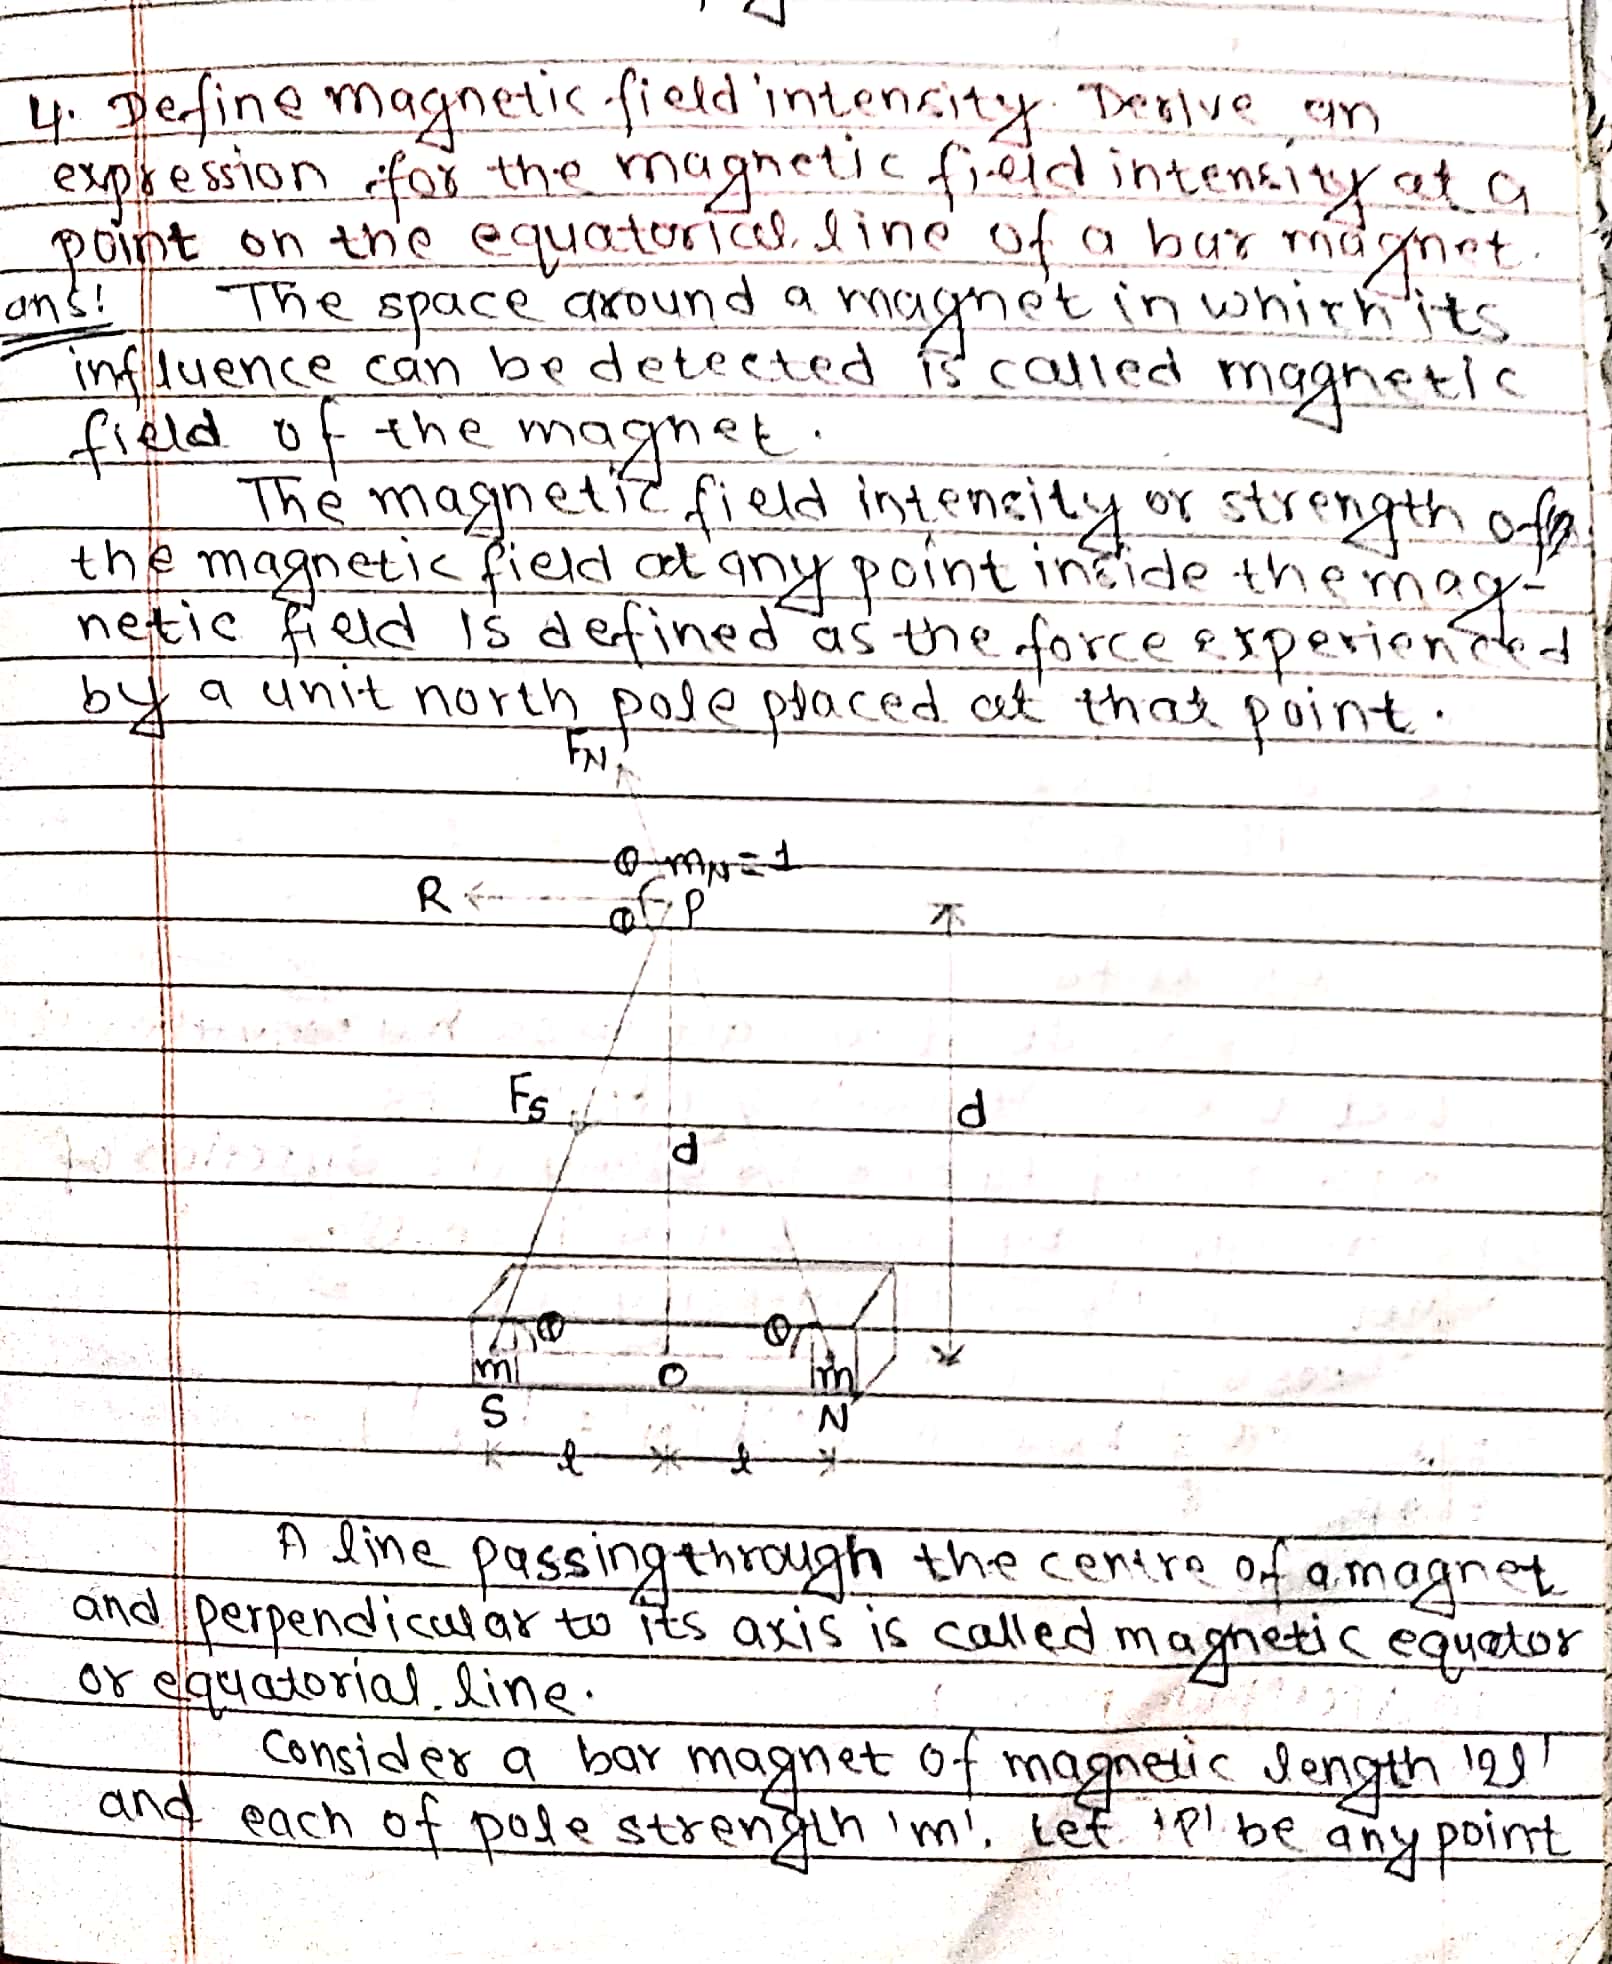 4. Define magnetic field intensity. Derive an
expression for the magnetic field intensity at a
point on the equatorical line of a bar magnet.
ans! The space around a magnet in which its
influence can be detected is called magnetic
field of the magnet.
The magnetic field intensity or strength of
the magnetic field at any point inside the mag-
netic field is defined as the force experienced
by a unit north pole placed at that point.
FN
θ mN = 1
R θ P
Fs d
d
θ θ
m O m
S N
l l
A line passing through the centre of a magnet
and perpendicular to its axis is called magnetic equator
or equatorial line.
Consider a bar magnet of magnetic length '2l'
and each of pole strength 'm'. Let 'P' be any point